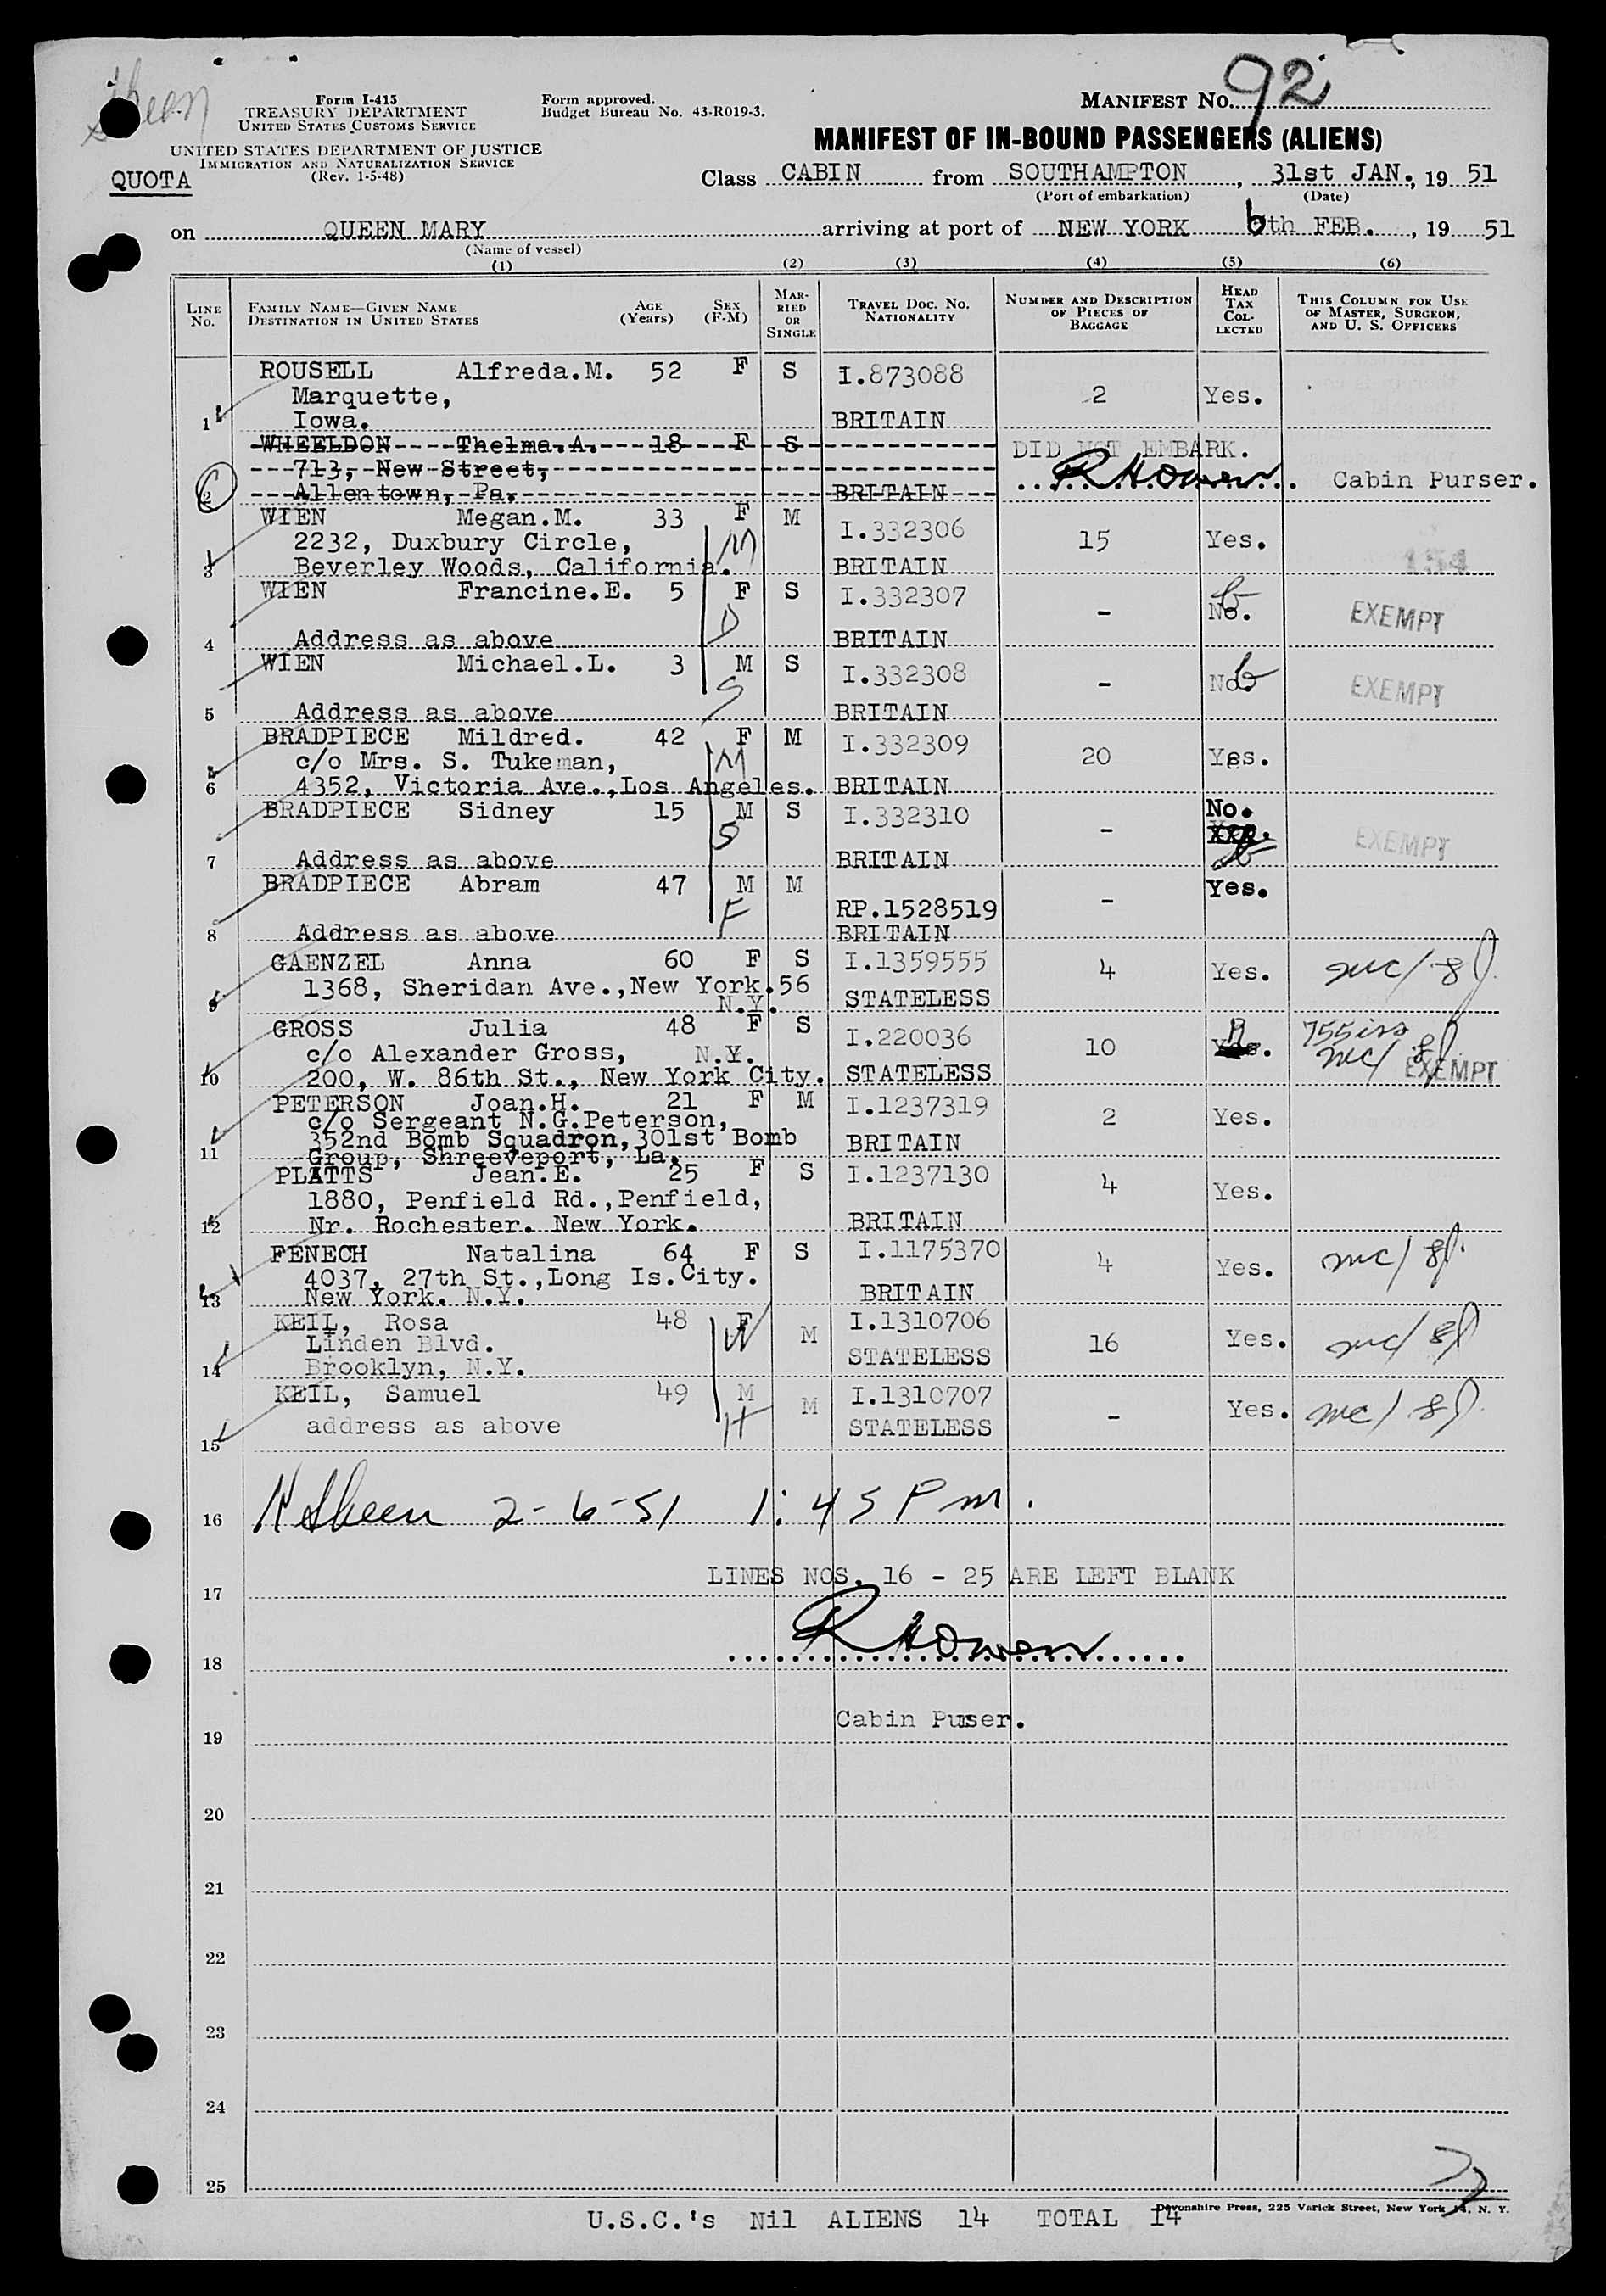 Sheen
Form I-415
TREASURY DEPARTMENT
UNITED STATES CUSTOMS SERVICE
UNITED STATES DEPARTMENT OF JUSTICE
IMMIGRATION AND NATURALIZATION SERVICE
(Rev. 1-5-48)
QUOTA
Form approved.
Budget Bureau No. 43-R019-3.
MANIFEST NO. 92
MANIFEST OF IN-BOUND PASSENGERS (ALIENS)
Class CABIN from SOUTHAMPTON, 31st JAN., 19 51
(Port of embarkation) (Date)
on QUEEN MARY arriving at port of NEW YORK 6th FEB., 19 51
(Name of vessel)
(1) (2) (3) (4) (5) (6)
LINE No. FAMILY NAME—GIVEN NAME DESTINATION IN UNITED STATES AGE (Years) SEX (F-M) MARRIED OR SINGLE TRAVEL DOC. NO. NATIONALITY NUMBER AND DESCRIPTION OF PIECES OF BAGGAGE HEAD TAX COLLECTED THIS COLUMN FOR USE OF MASTER, SURGEON, AND U. S. OFFICERS
ROUSELL Alfreda.M. 52 F S I.873088
Marquette, 2 Yes.
1 Iowa. BRITAIN
WHEELDON Thelma.A. 18 F S DID NOT EMBARK.
713, New Street, RHOwen Cabin Purser.
2 Allentown, Pa. BRITAIN
WIEN Megan.M. 33 F M I.332306
2232, Duxbury Circle, M 15 Yes.
3 Beverley Woods, California. BRITAIN 154
WIEN Francine.E. 5 F S I.332307
D - No. EXEMPT
4 Address as above BRITAIN
WIEN Michael.L. 3 M S I.332308
S - No. EXEMPT
5 Address as above BRITAIN
BRADPIECE Mildred. 42 F M I.332309
c/o Mrs. S. Tukeman, M 20 Yes.
6 4352, Victoria Ave.,Los Angeles. BRITAIN
BRADPIECE Sidney 15 M S I.332310 No.
S - EXEMPT
7 Address as above BRITAIN
BRADPIECE Abram 47 M M Yes.
F RP.1528519 -
8 Address as above BRITAIN
GAENZEL Anna 60 F S I.1359555
1368, Sheridan Ave.,New York.56 4 Yes.
9 N.Y. STATELESS
GROSS Julia 48 F S I.220036
c/o Alexander Gross, N.Y. 10
10 200, W. 86th St., New York City. STATELESS EXEMPT
PETERSON Joan.H. 21 F M I.1237319
c/o Sergeant N.G.Peterson, 2 Yes.
352nd Bomb Squadron,301st Bomb BRITAIN
11 Group, Shreeveport, La.
PLATTS Jean.E. 25 F S I.1237130
1880, Penfield Rd.,Penfield, 4 Yes.
12 Nr. Rochester. New York. BRITAIN
FENECH Natalina 64 F S I.1175370
4037, 27th St.,Long Is.City. 4 Yes.
13 New York. N.Y. BRITAIN
KEIL, Rosa 48 F M I.1310706
Linden Blvd. W 16 Yes.
14 Brooklyn, N.Y. STATELESS
KEIL, Samuel 49 M M I.1310707
address as above H STATELESS - Yes.
15
16 Sheen 2-6-51 1:45 Pm.
LINES NOS. 16 - 25 ARE LEFT BLANK
17
RHOwen
18
Cabin Purser.
19
20
21
22
23
24
25
Devonshire Press, 225 Varick Street, New York 14, N. Y.
U.S.C.'s Nil ALIENS 14 TOTAL 14